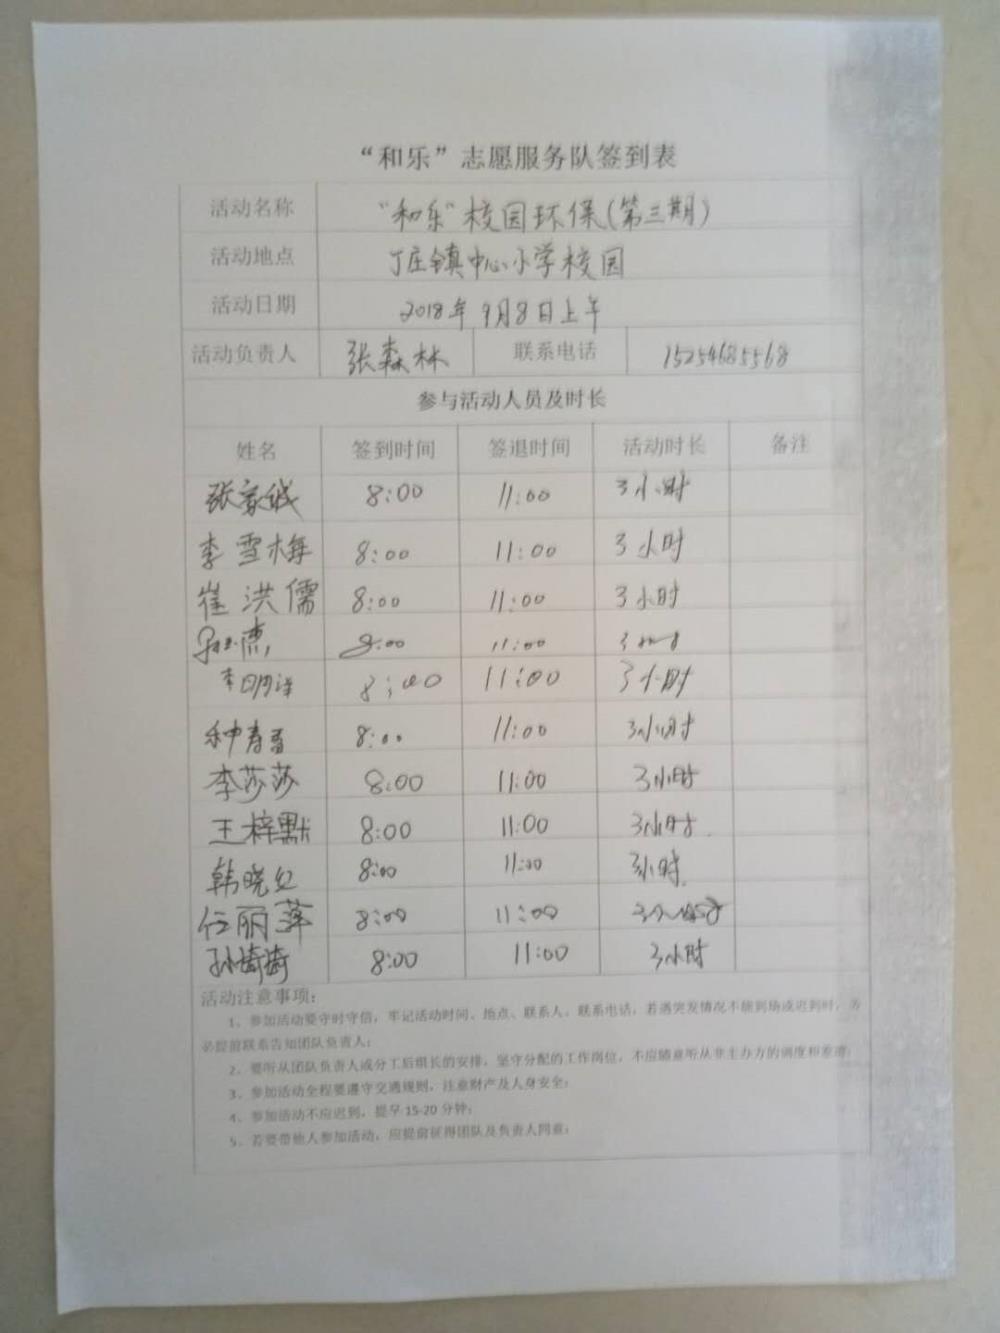 “和乐”志愿服务队签到表
活动名称 “和乐”校园环保(第三期)
活动地点 丁庄镇中心小学校园
活动日期 2018年9月8日上午
活动负责人 张森林 联系电话 15254685568
参与活动人员及时长
姓名 签到时间 签退时间 活动时长 备注
张家诚 8:00 11:00 3小时
李雪梅 8:00 11:00 3小时
崔洪儒 8:00 11:00 3小时
8:00 11:00 3小时
李明洋 8:00 11:00 3小时
8:00 11:00 3小时
李莎莎 8:00 11:00 3小时
王梓默 8:00 11:00 3小时
韩晓 8:00 11:00 3小时
任丽萍 8:00 11:00 3小时
孙琦琦 8:00 11:00 3小时
活动注意事项：
1、参加活动要守时守信，牢记活动时间、地点、联系人、联系电话，若遇突发情况不能到场或迟到时，务
必提前联系告知团队负责人；
2、要听从团队负责人或分工后组长的安排，坚守分配的工作岗位，不应随意听从非主办方的调度和差遣；
3、参加活动全程要遵守交通规则，注意财产及人身安全；
4、参加活动不应迟到，提早15-20分钟；
5、若要带他人参加活动，应提前征得团队及负责人同意；